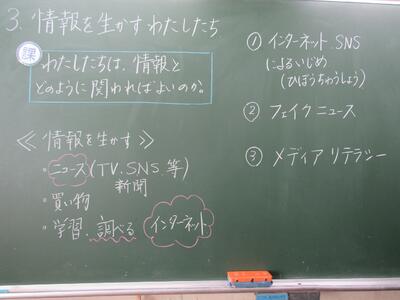 3. 情報を生かすわたしたち
課 わたしたちは、情報と
どのように関わればよいのか。
≪ 情報を生かす ≫
・ニュース(TV.SNS.等)
新聞
・買い物
・学習.調べる インターネット
① インターネット.SNS
によるいじめ
(ひぼうちゅうしょう)
② フェイクニュース
③ メディアリテラシー